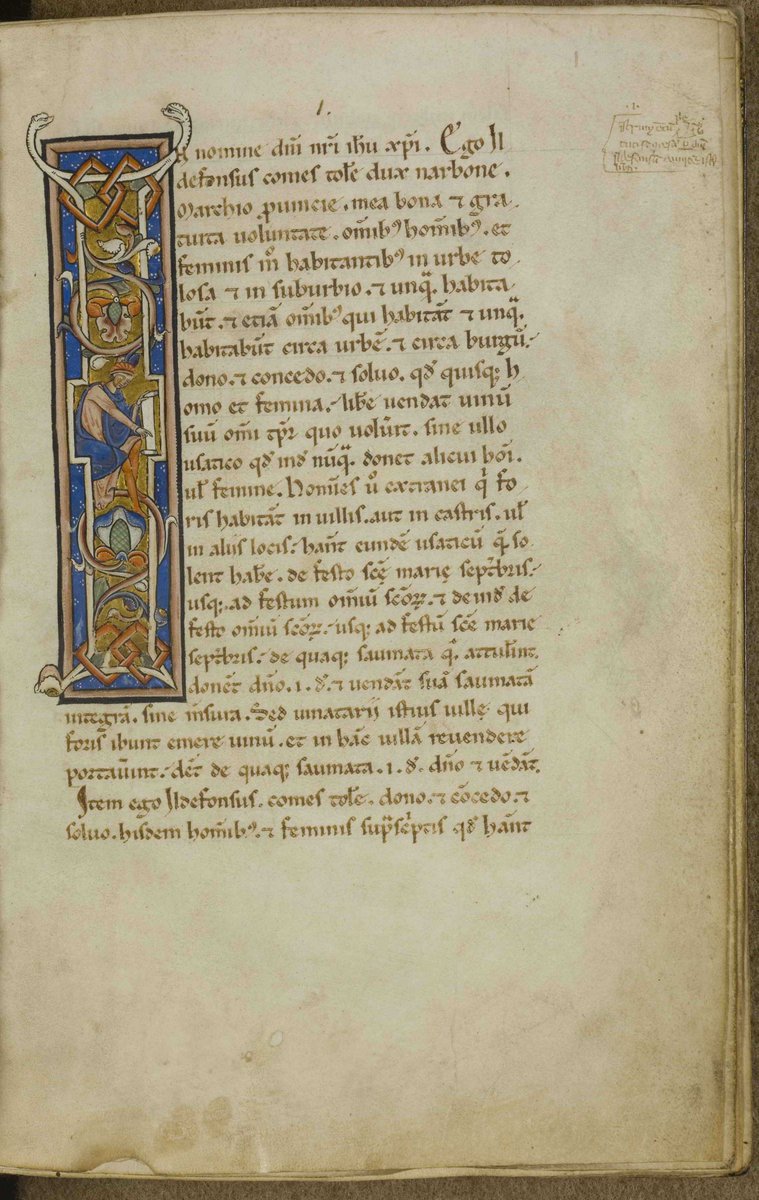 I.
In nomine dñi nri ihu xpi. Ego Il
defonsus comes tole dux narbone.
Marchio puincie. mea bona ⁊ gra
tuita voluntate. omib; homib;. et
feminis m̊ habitantib; in urbe to
losa ⁊ in suburbio. ⁊ unq̃. habita
būt. ⁊ etiā omib; qui habitāt ⁊ unq̃.
habitabūt circa urbē. ⁊ circa burgū.
dono. ⁊ concedo. ⁊ solvo. qd̃ quisq; h
omo et femina. libe vendat vinū
suū omi tpr quo volũit. sine ullo
usatico qd̃ inđ nūq̃. donet alicui hoi.
ul̃ femine. Homīes ů extranei q̇ fo
ris habitāt in villis. aut in castris. ul̃
in aliis locis. hãnt eundē usaticū q̃. so
lent hab̃e. de festo scę marię septb̃ris.
usq; ad festum omiū scoꝝ. ⁊ deinđ de
festo omiū scoꝝ. usq; ad festū scę marie
septb̃ris. de quaq; saumata q̃. attulīnt.
donēt dño. I. đ. ⁊ vendāt suā saumatā
integrā. sine m̄sura. Sed vinatarii istius villę qui
foris ibunt emere vinū. et in hãc villā revendere
portaũint. dēt de quaq; saumata. I. đ. dño ⁊ vēdāt.
Item ego Ildefonsus. comes tole. dono. ⁊ cōcedo. ⁊
solvo. hisdem homib;. ⁊ feminis sup̃sc̃ptis qd̃ hãnt